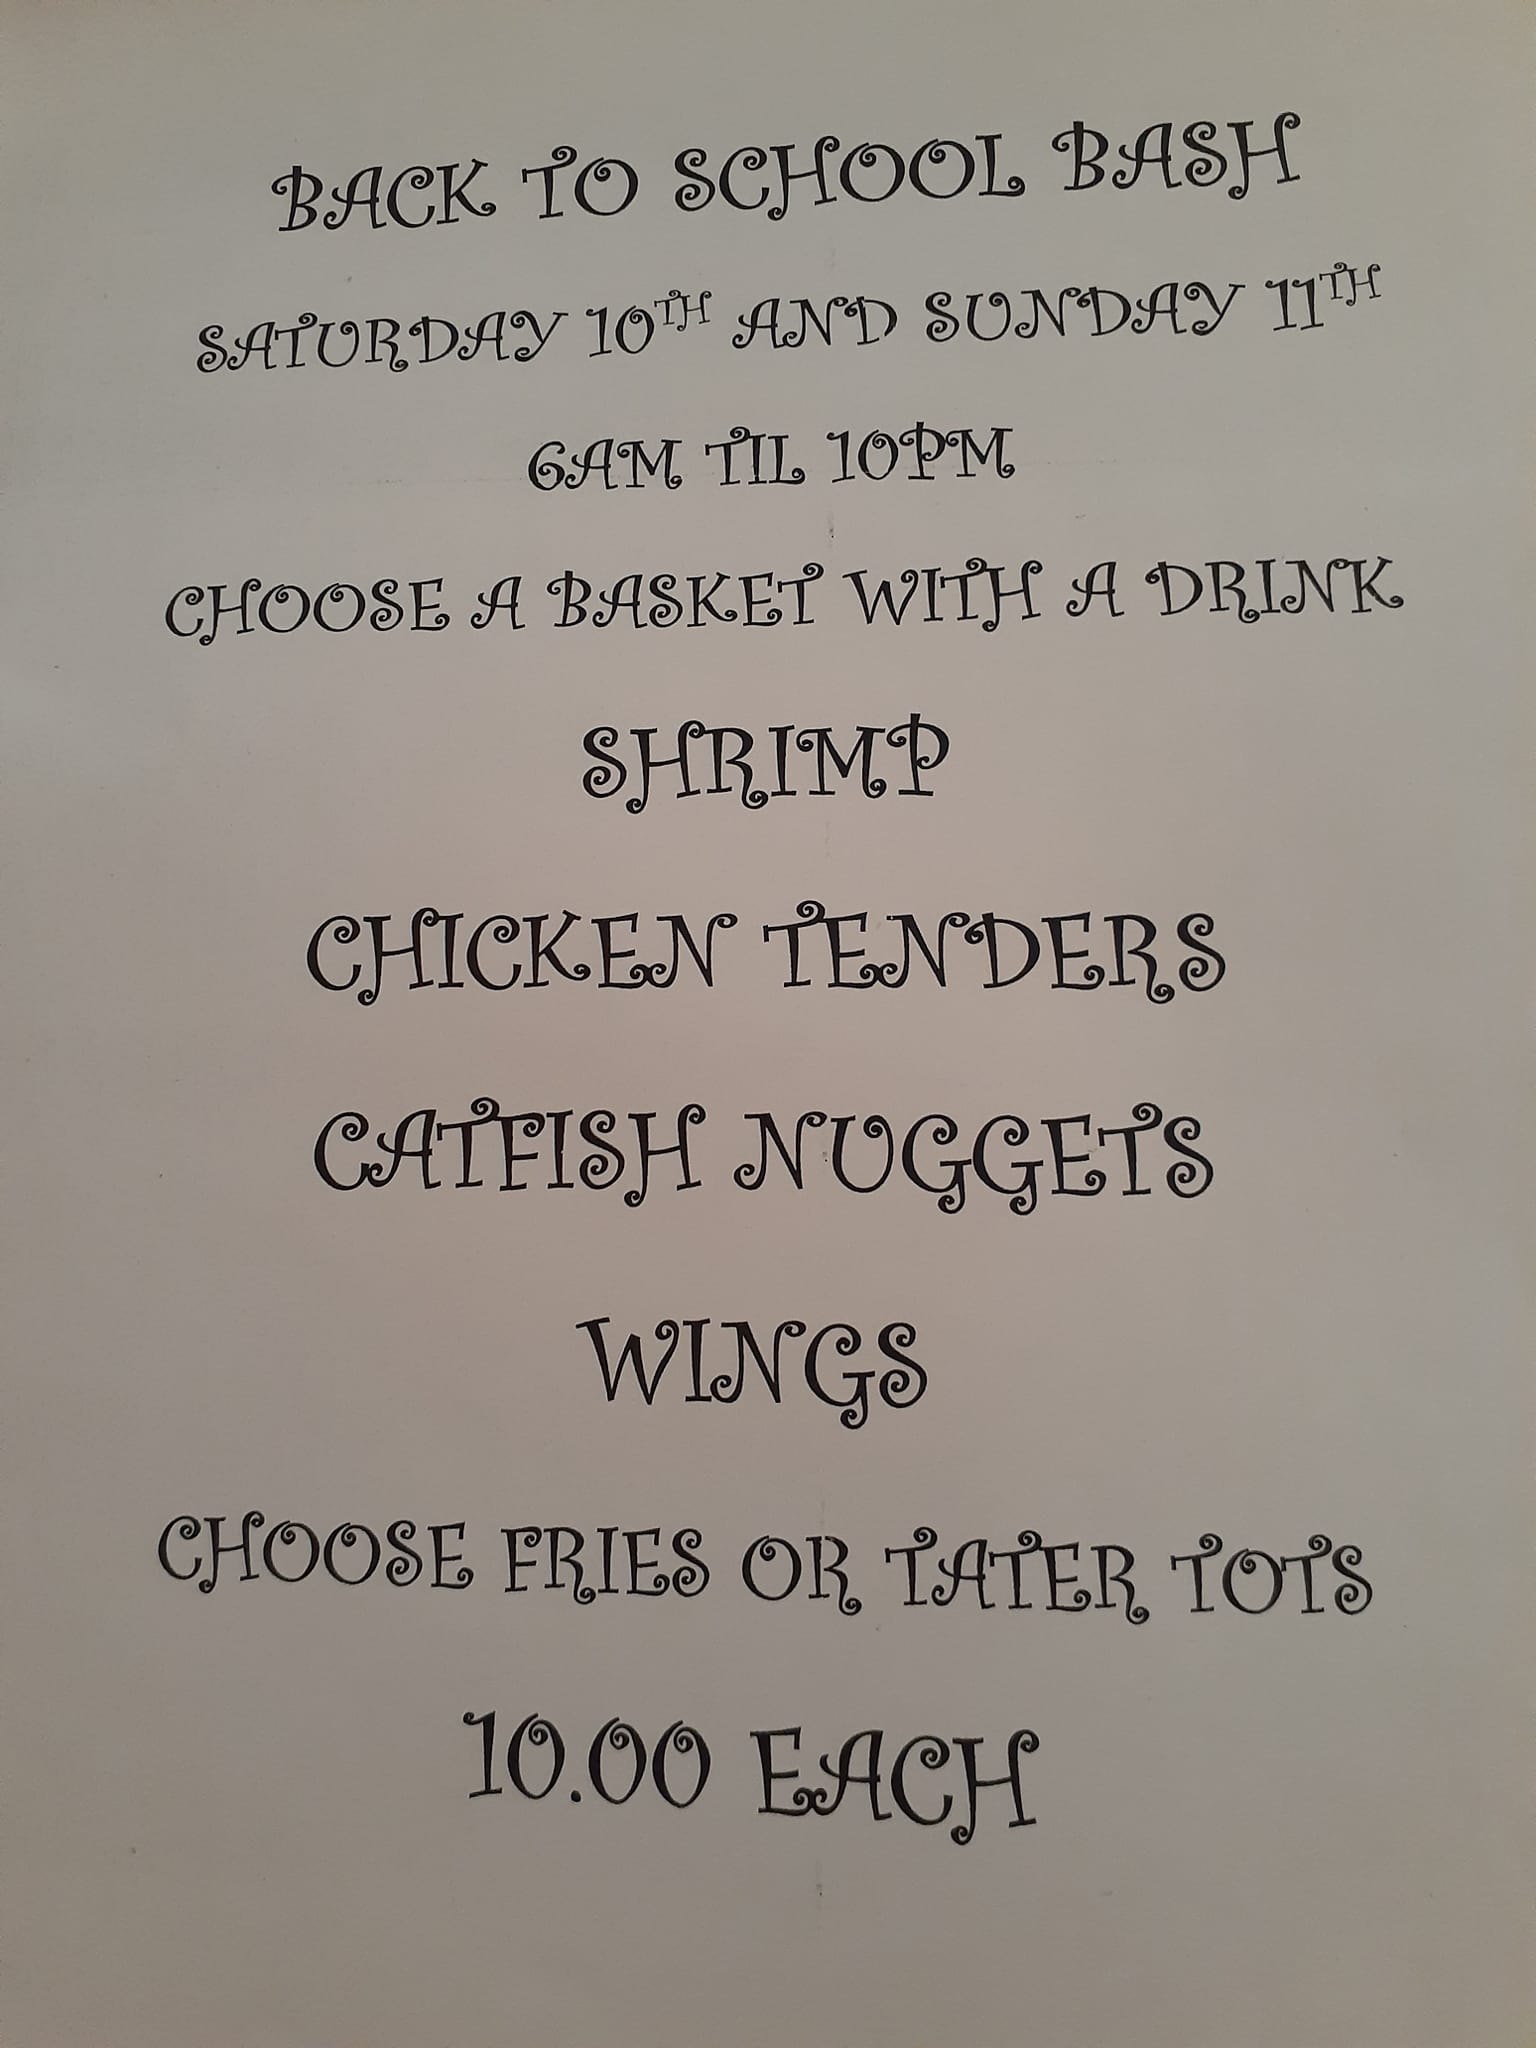 BACK TO SCHOOL BASH
SATURDAY 10TH AND SUNDAY 11TH
6AM TIL 10PM
CHOOSE A BASKET WITH A DRINK
SHRIMP
CHICKEN TENDERS
CATFISH NUGGETS
WINGS
CHOOSE FRIES OR TATER TOTS
10.00 EACH